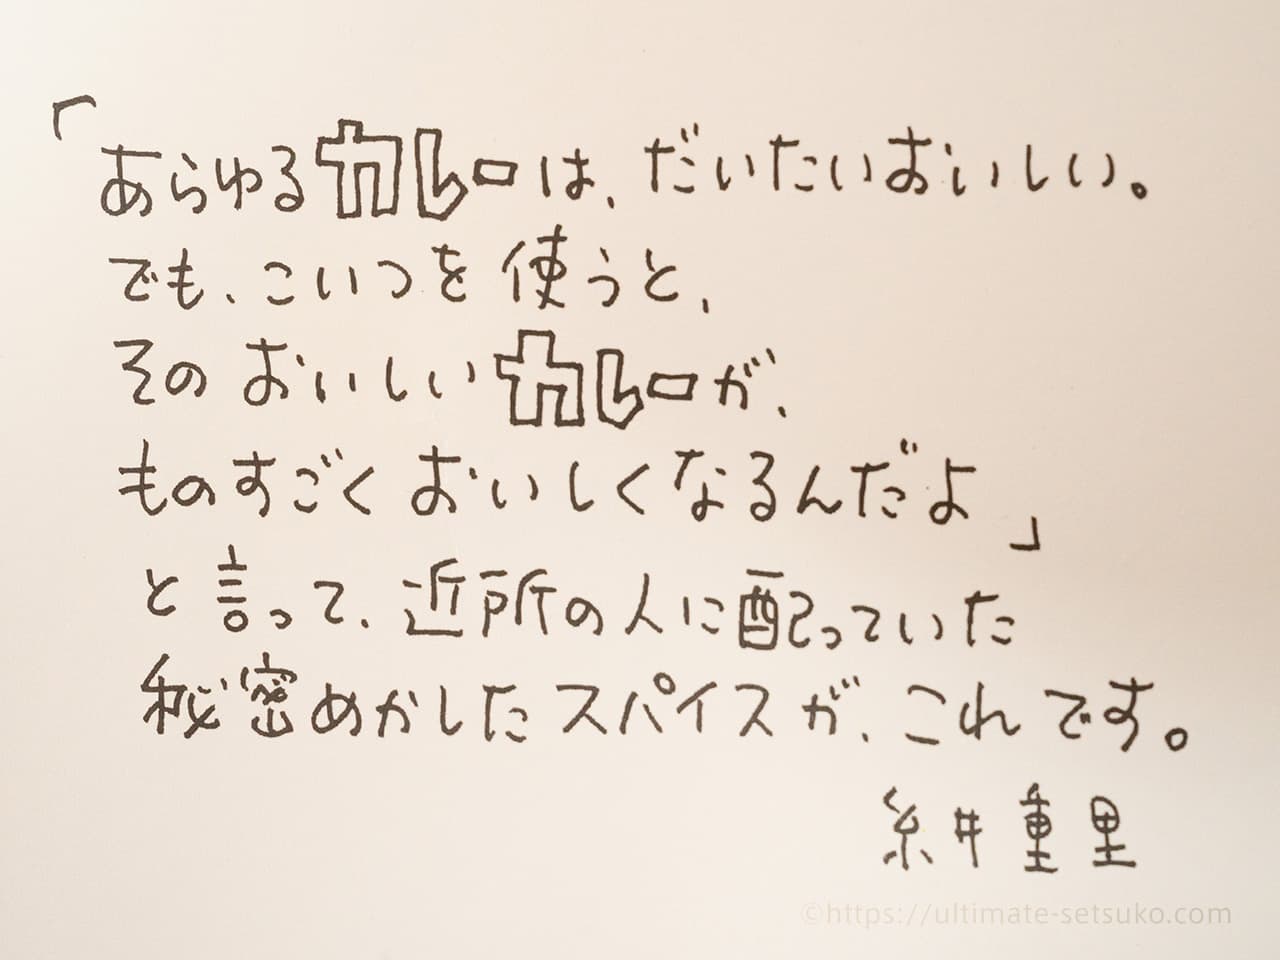 「あらゆるカレーは、だいたいおいしい。
でも、こいつを使うと、
そのおいしいカレーが、
ものすごくおいしくなるんだよ」
と言って、近所の人に配っていた
秘密めかしたスパイスが、これです。
糸井重里
©https://ultimate-setsuko.com